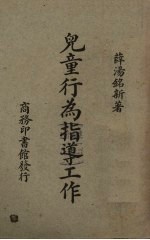 薛濤銘新著
兒童行為指導工作
商務印書館發行